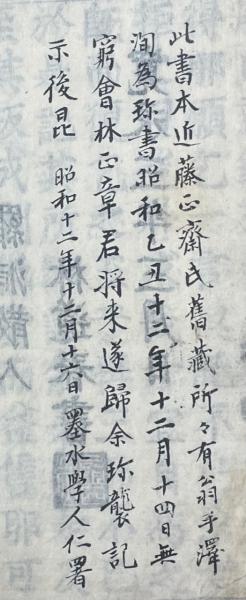 此書本近藤正齋氏舊藏所々有翁手澤
洵為珍書昭和乙丑十二年十二月十四日無
窮會林正章君将来遂歸余珍襲記
示後昆　昭和十二年十二月十六日墨水學人仁署